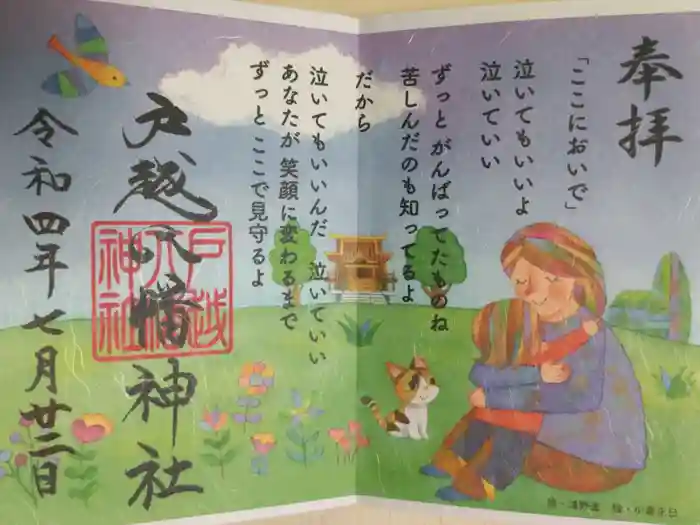 奉拝
「ここにおいで」
泣いてもいいよ
泣いていい
ずっと がんばってたものね
苦しんだのも知ってるよ
だから
泣いてもいいんだ 泣いていい
あなたが 笑顔に変わるまで
ずっと ここで見守るよ
戸越八幡神社
戸越
八幡
神社
令和四年七月廿二日